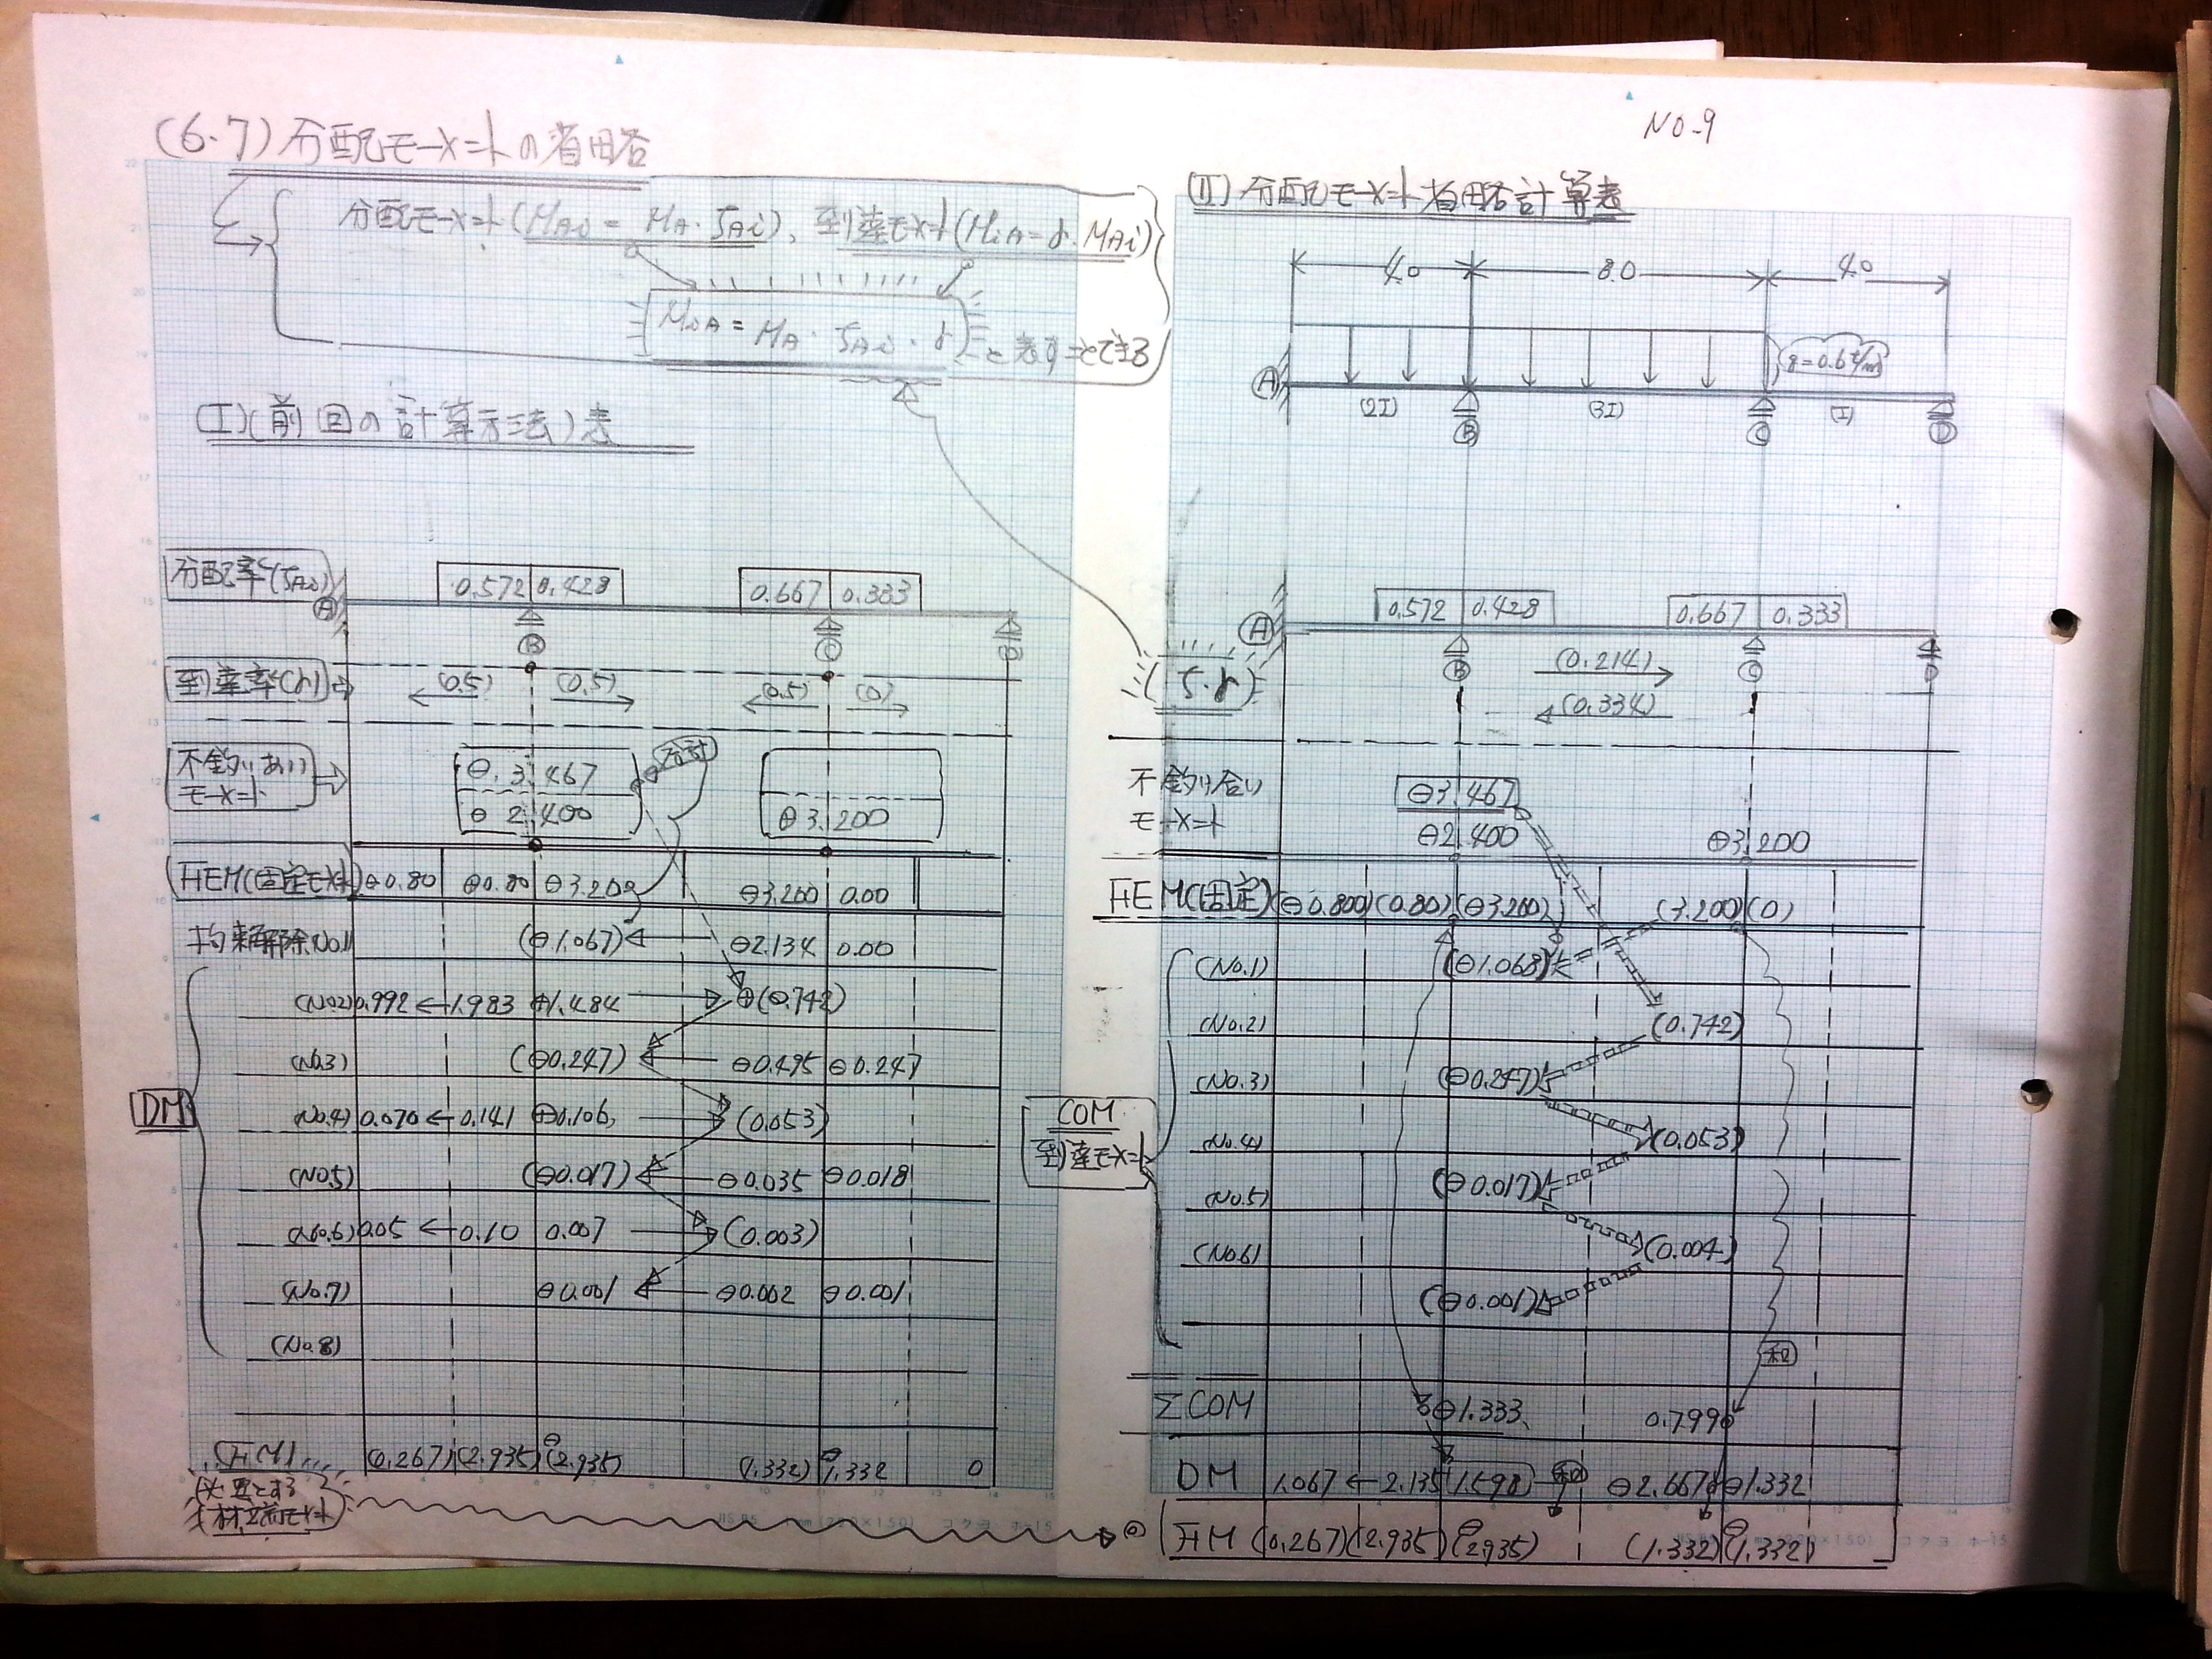 (6.7) 分配モーメントの省略
分配モーメント(MAi = MA・ζAi)、到達モーメント(MiA=γ・MAi)
MiA = MA・ζAi・γ と表すことできる
(I)(前回の計算方法)表
分配率(ζAi)
0.572 0.428 0.667 0.333
A B C D
到達率(γ)
(0.5) (0.5) (0.5) (0)
不釣りあい モーメント
⊖3.467 合計
⊖2.400 ⊖3.200
FEM(固定モーメント) ⊖0.80 ⊖0.80 ⊖3.200 ⊖3.200 0.00
拘束解除No.1 (⊖1.067) ← ⊖2.134 0.00
DM
(No.2) 0.992 ← 1.983 ⊕1.484 → ⊕(0.742)
(No.3) (⊖0.247) ← ⊖0.495 ⊖0.247
(No.4) 0.070 ← 0.141 ⊕0.106 → (0.053)
(No.5) (⊖0.017) ← ⊖0.035 ⊖0.018
(No.6) 0.05 ← 0.10 0.007 → (0.003)
(No.7) ⊖0.001 ← ⊖0.002 ⊖0.001
(No.8)
(FM) (0.267) (2.935) ⊖(2.935) (1.332) ⊖1.332 0
必要とする
材端モーメント
NO-9
(II) 分配モーメント省略計算表
4.0 8.0 4.0
q=0.6t/m
A (2I) B (3I) C (I) D
0.572 0.428 0.667 0.333
A B C D
(ζ・γ)
(0.214)
(0.334)
不釣り合い
モーメント
⊖3.467
⊖2.400 ⊖3.200
FEM(固定) (⊖0.800) (0.80) (⊖3.200) (3.200) (0)
COM
到達モーメント
(No.1) (⊖1.068)
(No.2) (0.742)
(No.3) (⊖0.247)
(No.4) (0.053)
(No.5) (⊖0.017)
(No.6) (0.004)
(⊖0.001)
和
ΣCOM ⊖1.333 0.799
DM 1.067 ← 2.135 (1.598) 和 ⊖2.667 ⊖1.332
FM (0.267) (2.935) ⊖(2.935) (1.332) ⊖(1.332)